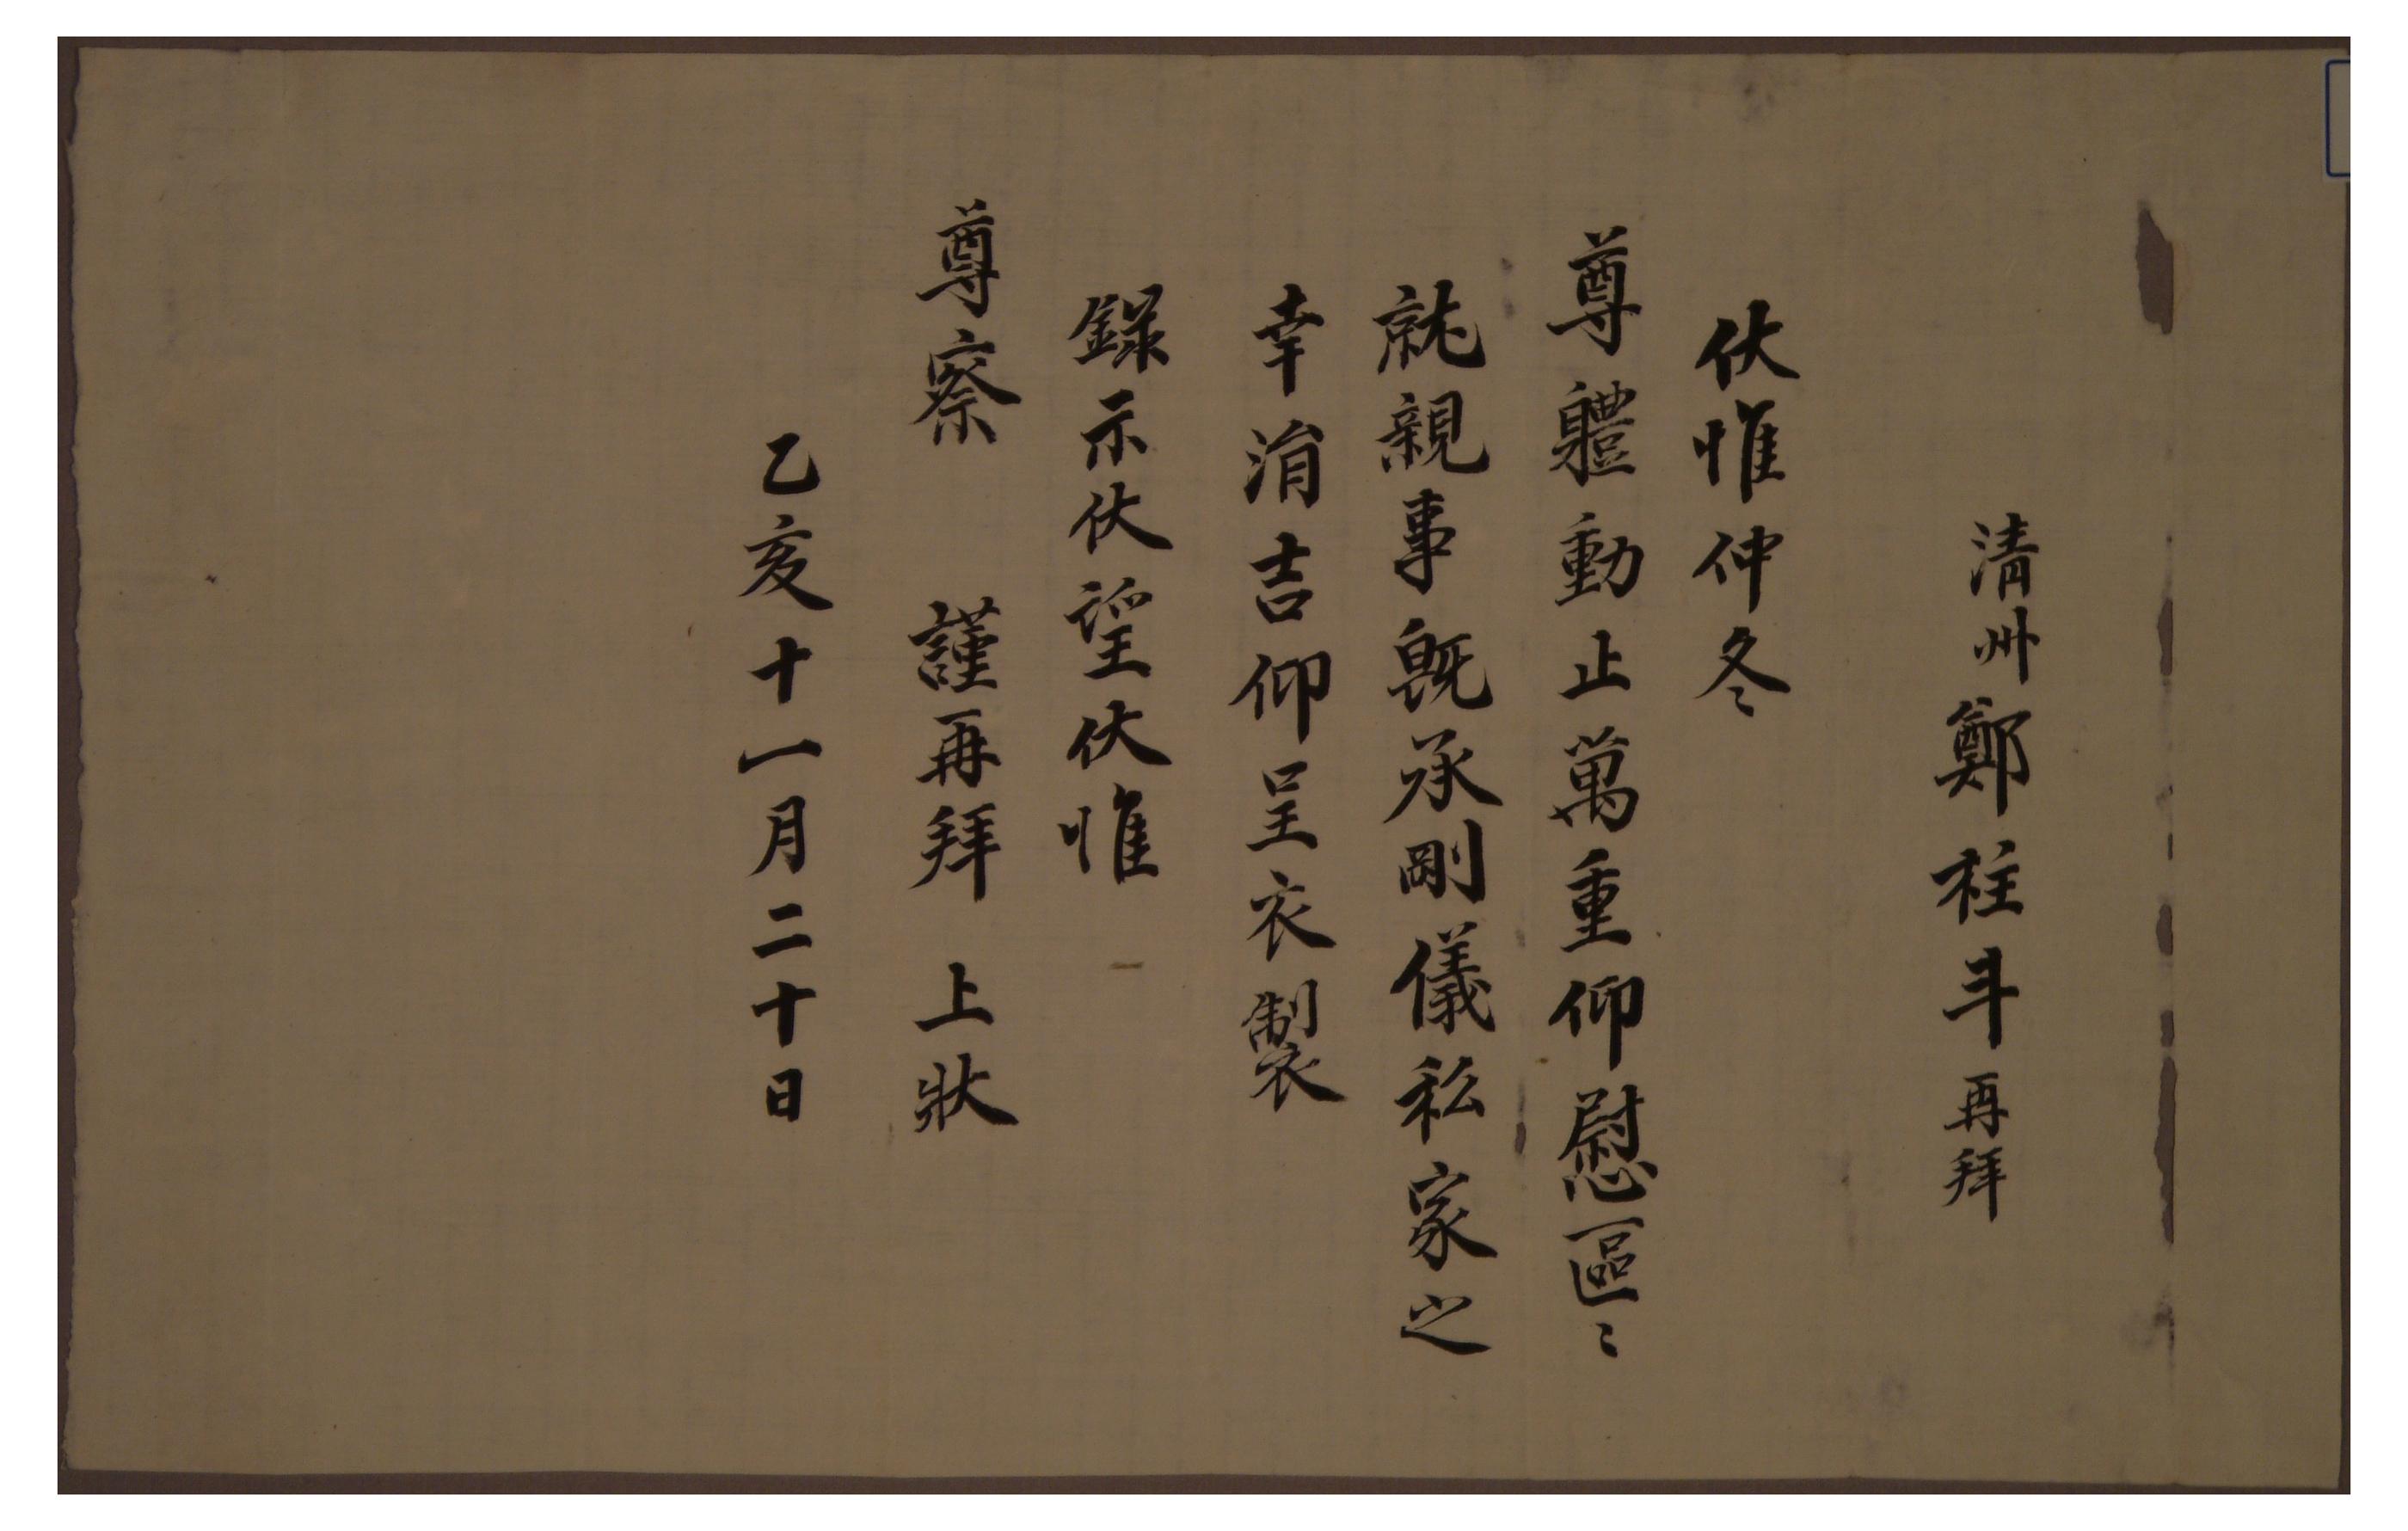 清州鄭柱斗再拜
伏惟仲冬
尊軆動止萬重仰慰區〻
就親事旣承剛儀私家之
幸涓吉仰呈衣製
錄示伏望伏惟
尊察 謹再拜 上狀
乙亥十一月二十日